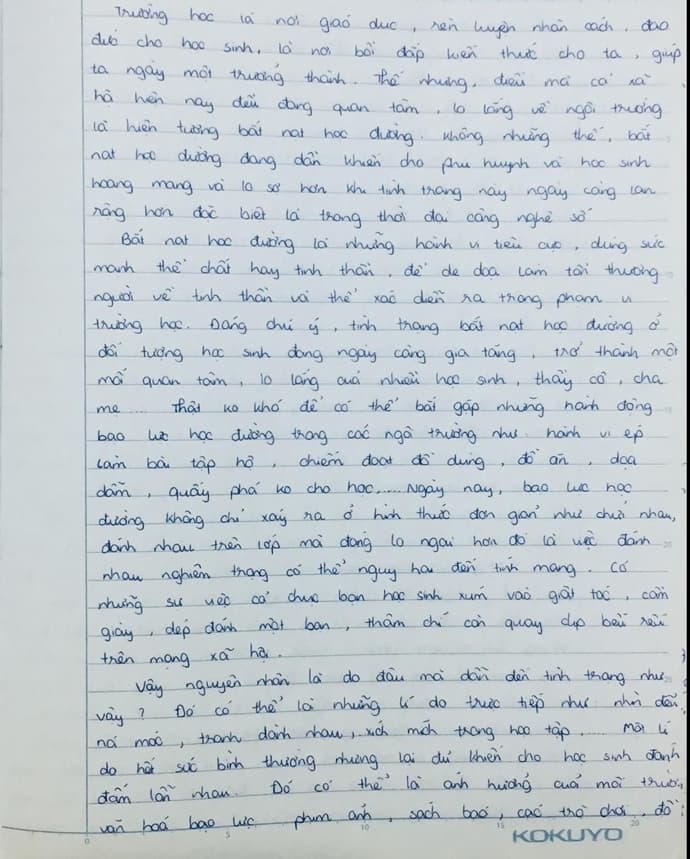 Trường học là nơi giáo dục, rèn luyện nhân cách, đạo
đức cho học sinh, là nơi bồi đắp kiến thức cho ta, giúp
ta ngày một trưởng thành. Thế nhưng, điều mà cả xã
hội hiện nay đều đang quan tâm, lo lắng về ngôi trường
là hiện tượng bắt nạt học đường. Không những thế, bắt
nạt học đường đang dần khiến cho phụ huynh và học sinh
hoang mang và lo sợ hơn khi tình trạng này ngày càng lan
rộng hơn đặc biệt là trong thời đại công nghệ số
Bắt nạt học đường là những hành vi tiêu cực, dùng sức
mạnh thể chất hay tinh thần, để đe dọa làm tổn thương
người về tinh thần và thể xác diễn ra trong phạm vi
trường học. Đáng chú ý, tình trạng bắt nạt học đường ở
đối tượng học sinh đang ngày càng gia tăng, trở thành một
mối quan tâm, lo lắng của nhiều học sinh, thầy cô, cha
mẹ .... Thật ko khó để có thể bắt gặp những hành động
bạo lực học đường trong các ngôi trường như hành vi ép
làm bài tập hộ, chiếm đoạt đồ dùng, đồ ăn, dọa
dẫm, quấy phá ko cho học,.... Ngày nay, bạo lực học
đường không chỉ xảy ra ở hình thức đơn giản như chửi nhau,
đánh nhau trên lớp mà đáng lo ngại hơn đó là việc đánh
nhau nghiêm trọng có thể nguy hại đến tính mạng. Có
những sự việc cả chục bạn học sinh xúm vào giật tóc, cầm
giày, dép đánh một bạn, thậm chí còn quay clip bêu rếu
trên mạng xã hội.
Vậy nguyên nhân là do đâu mà dẫn đến tình trạng như
vậy? Đó có thể là những lí do trực tiếp như nhìn đểu,
nói móc, tranh giành nhau, xích mích trong học tập ..... Mỗi lí
do hết sức bình thường nhưng lại đủ khiến cho học sinh đánh
đấm lẫn nhau. Đó có thể là ảnh hưởng của môi trường
văn hoá bạo lực phim ảnh, sách báo, các trò chơi, đồ
0 5 10 15 20
KOKUYO